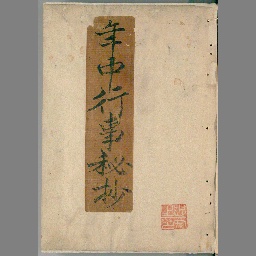 年中行事秘抄